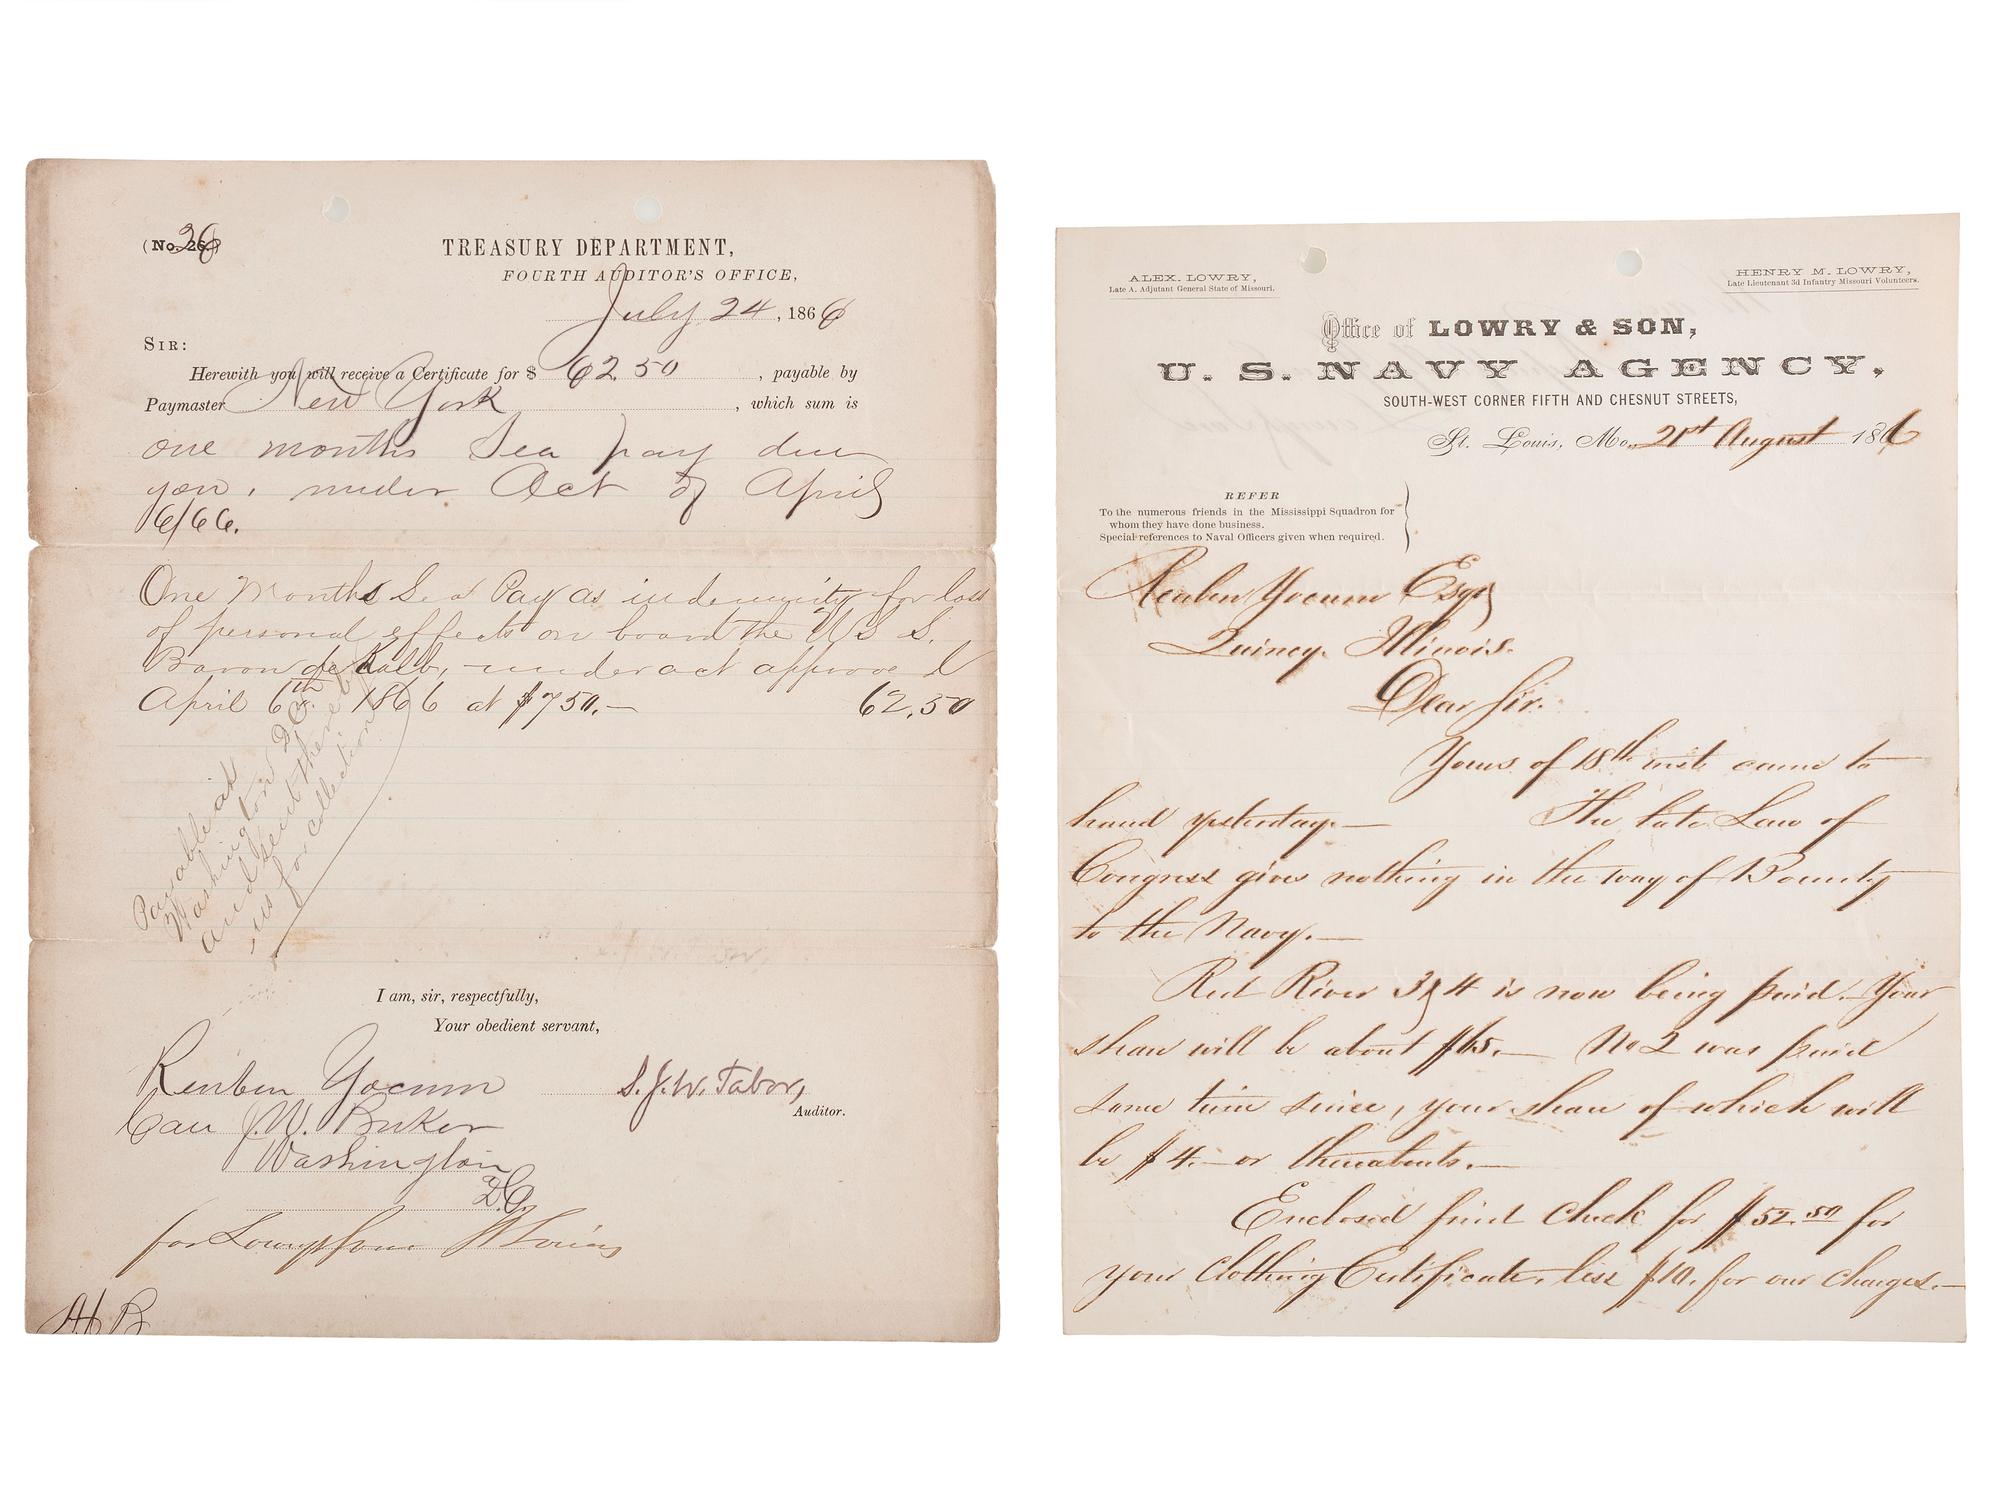 (No. 26.) 26
TREASURY DEPARTMENT,
FOURTH AUDITOR'S OFFICE,
July 24, 1866
SIR:
Herewith you will receive a Certificate for $ 62.50, payable by
Paymaster New York, which sum is
one months Sea pay due
you, under Act of April
6/66.
One Months Sea Pay as indemnity for loss
of personal effects on board the U S S.
Baron de Kalb, under act approved
April 6th 1866 at $750.— 62.50
Payable at
Washington D.C.
and sent there by
us for collection
I am, sir, respectfully,
Your obedient servant,
Reuben Yocum
S. J. W. Tabor,
Auditor.
Care J. W.
Washington
D.C.
for Lowry & Son St Louis
ALEX. LOWRY,
Late A. Adjutant General State of Missouri.
HENRY M. LOWRY,
Late Lieutenant 3d Infantry Missouri Volunteers.
Office of LOWRY & SON,
U. S. NAVY AGENCY,
SOUTH-WEST CORNER FIFTH AND CHESNUT STREETS,
St. Louis, Mo., 21st August 1866
REFER
To the numerous friends in the Mississippi Squadron for
whom they have done business.
Special references to Naval Officers given when required.
Reuben Yocum Esqr
Quincy. Illinois.
Dear Sir.
Yours of 18th inst came to
hand yesterday.— The late Law of
Congress gives nothing in the way of Bounty
to the Navy.—
Red River 3 & 4 is now being paid. Your
share will be about $65.— No 2 was paid
some time since, your share of which will
be $4.— or thereabouts.—
Enclosed find check for $52.50 for
your Clothing Certificate, less $10. for our charges.—